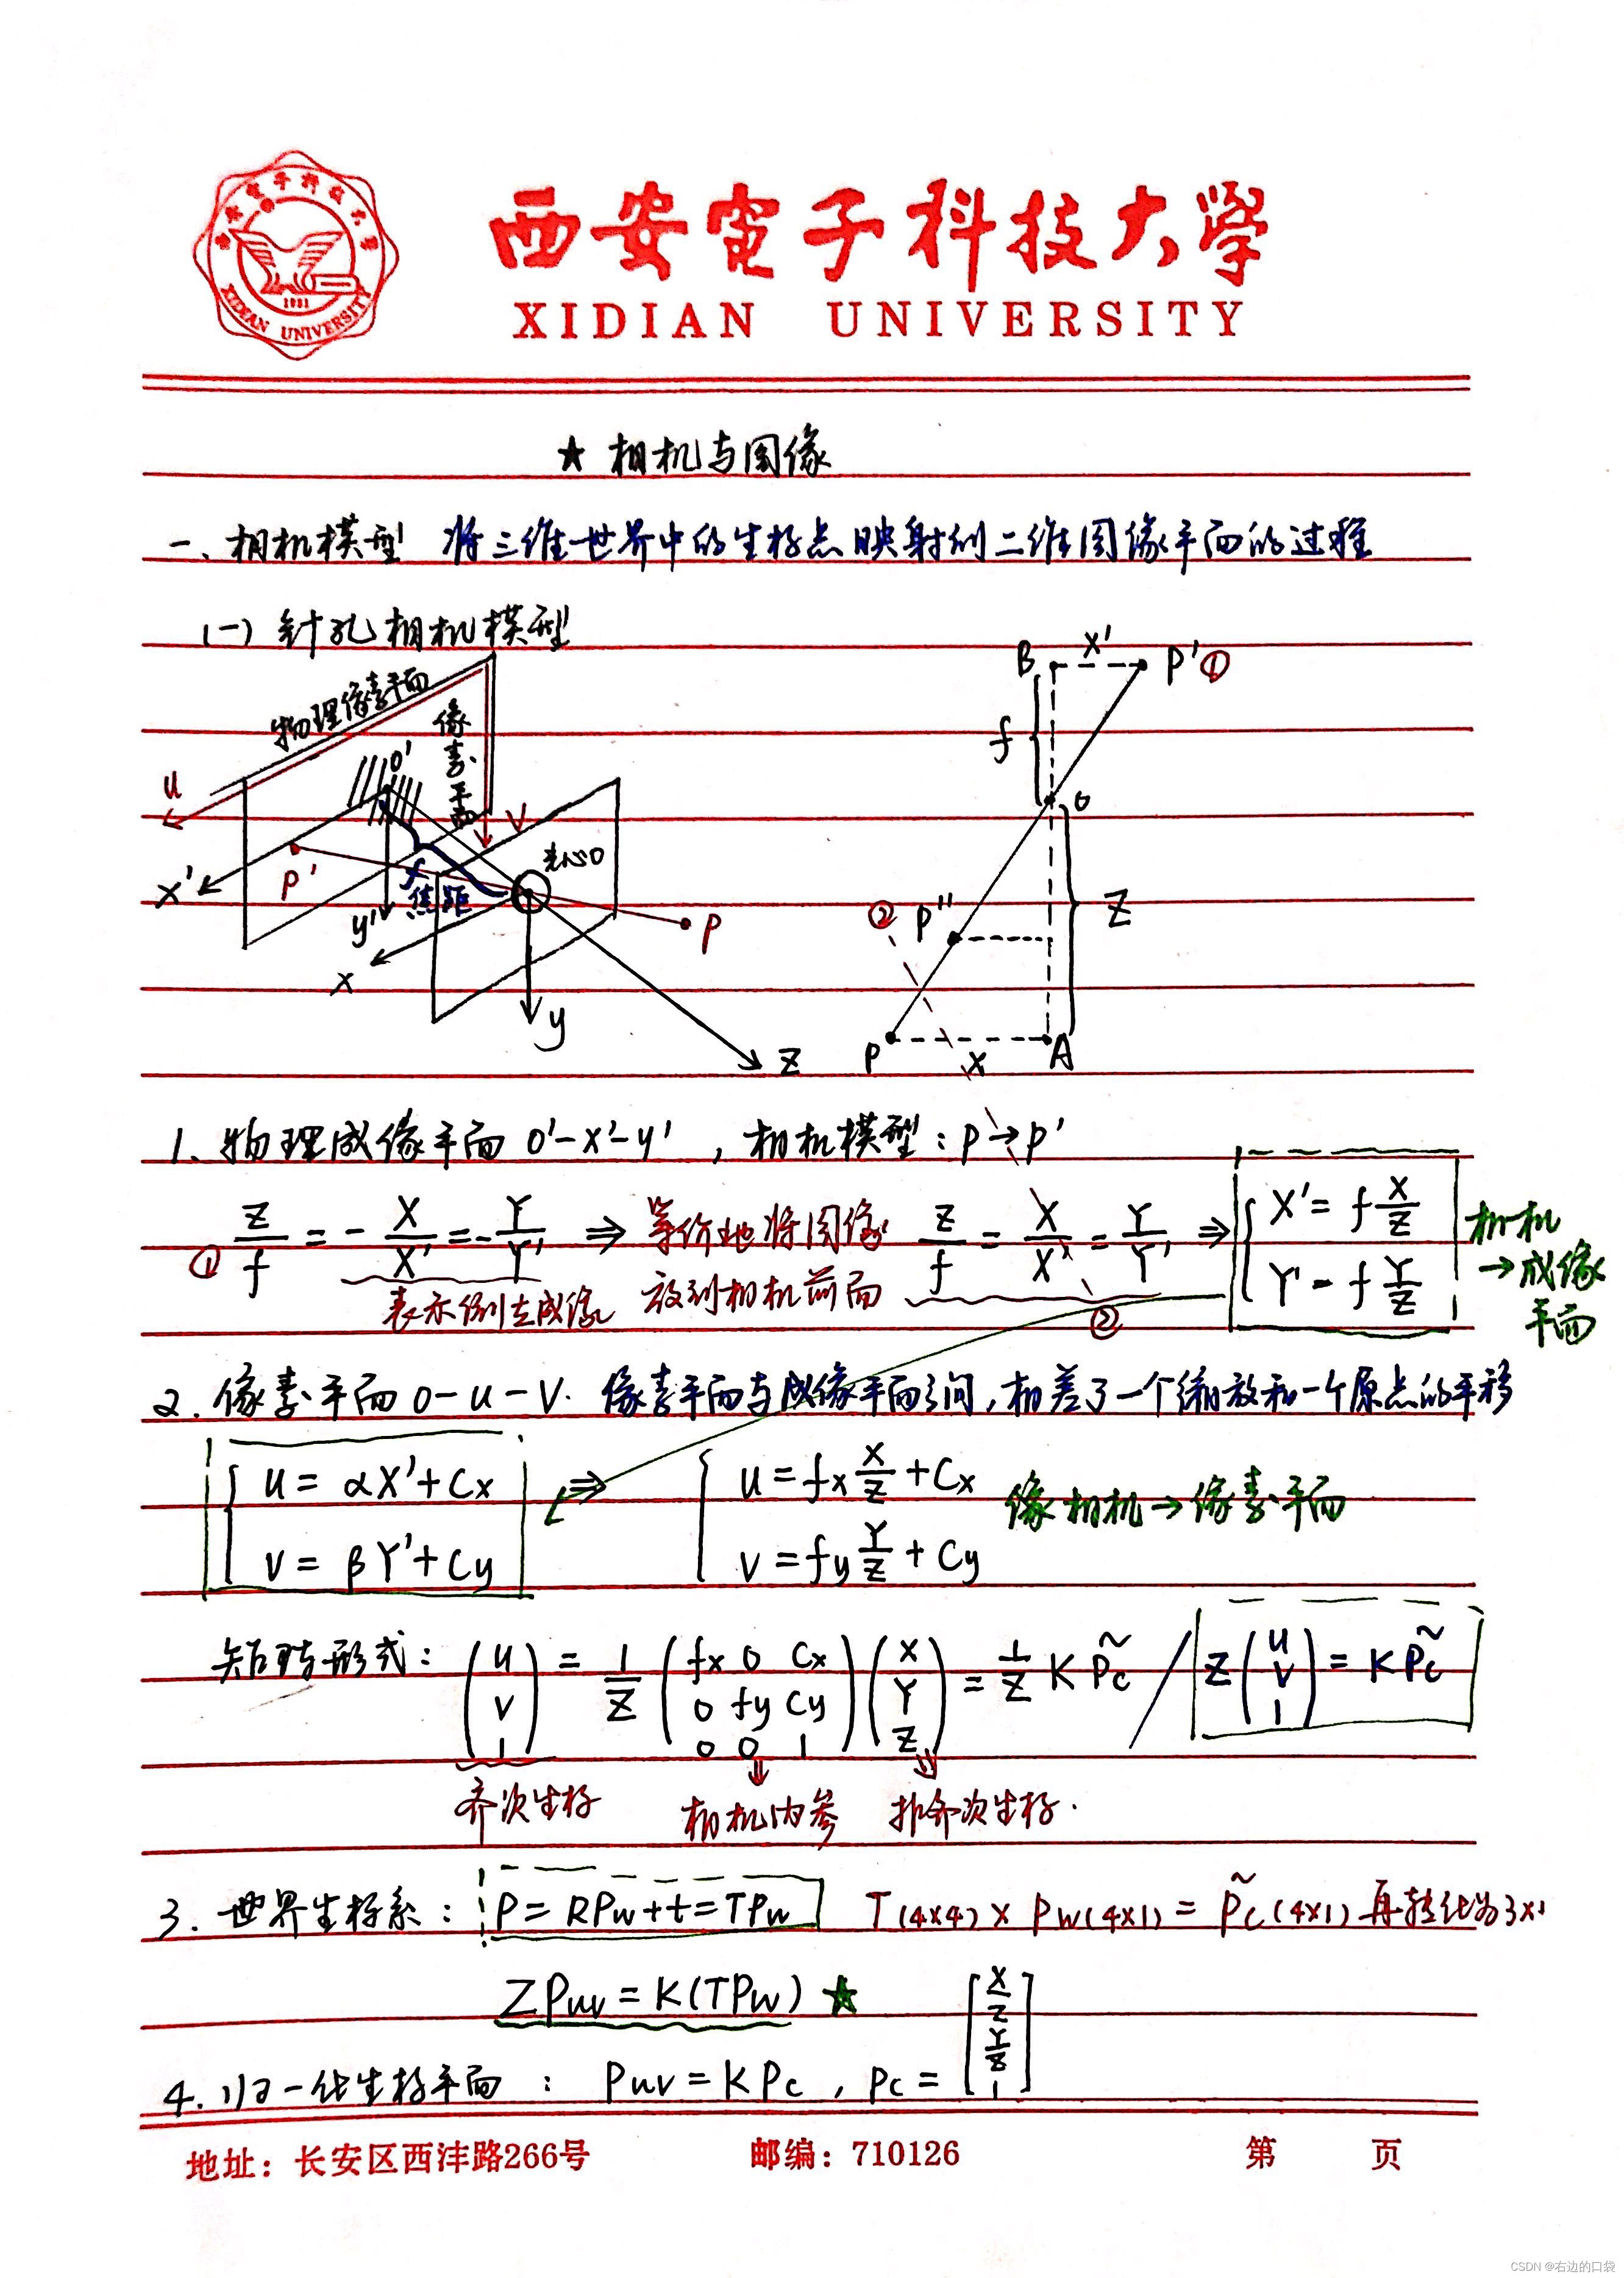 西安電子科技大學
XIDIAN UNIVERSITY
1931
XIDIAN UNIVERSITY
★ 相机与图像
一、相机模型 将三维世界中的坐标点映射到二维图像平面的过程
(一) 针孔相机模型
物理像素平面
像素平面
u
O'
V
光心O
x'
P'
f
焦距
y'
P
x
y
z
B
X'
P' ①
f
O
② P''
Z
P
X
A
1. 物理成像平面 O'-x'-y' , 相机模型: P → P'
① Z/f = - X/X' = - Y/Y' ⇒ 等价地将图像放到相机前面 Z/f = X/X' = Y/Y' ⇒ { X' = f X/Z
Y' = f Y/Z
表示倒立成像
②
相机→成像平面
2. 像素平面 O-u-V. 像素平面与成像平面之间,相差了一个缩放和一个原点的平移
{ u = αX' + Cx ⇒ { u = fx X/Z + Cx 像相机→像素平面
v = βY' + Cy v = fy Y/Z + Cy
矩阵形式: (u v 1) = 1/Z (fx 0 Cx 0 fy Cy 0 0 1) (X Y Z) = 1/Z K P̃c / Z (u v 1) = K P̃c
齐次坐标 相机内参 非齐次坐标.
3. 世界坐标系: P = RPw + t = TPw T(4x4) x Pw(4x1) = P̃c(4x1) 再转化为3x1
Z Puv = K(TPw) ★
4. 归一化坐标平面 : Puv = K Pc , Pc = [X/Z Y/Z 1]
地址:长安区西沣路266号 邮编:710126 第 页
CSDN @右边的口袋